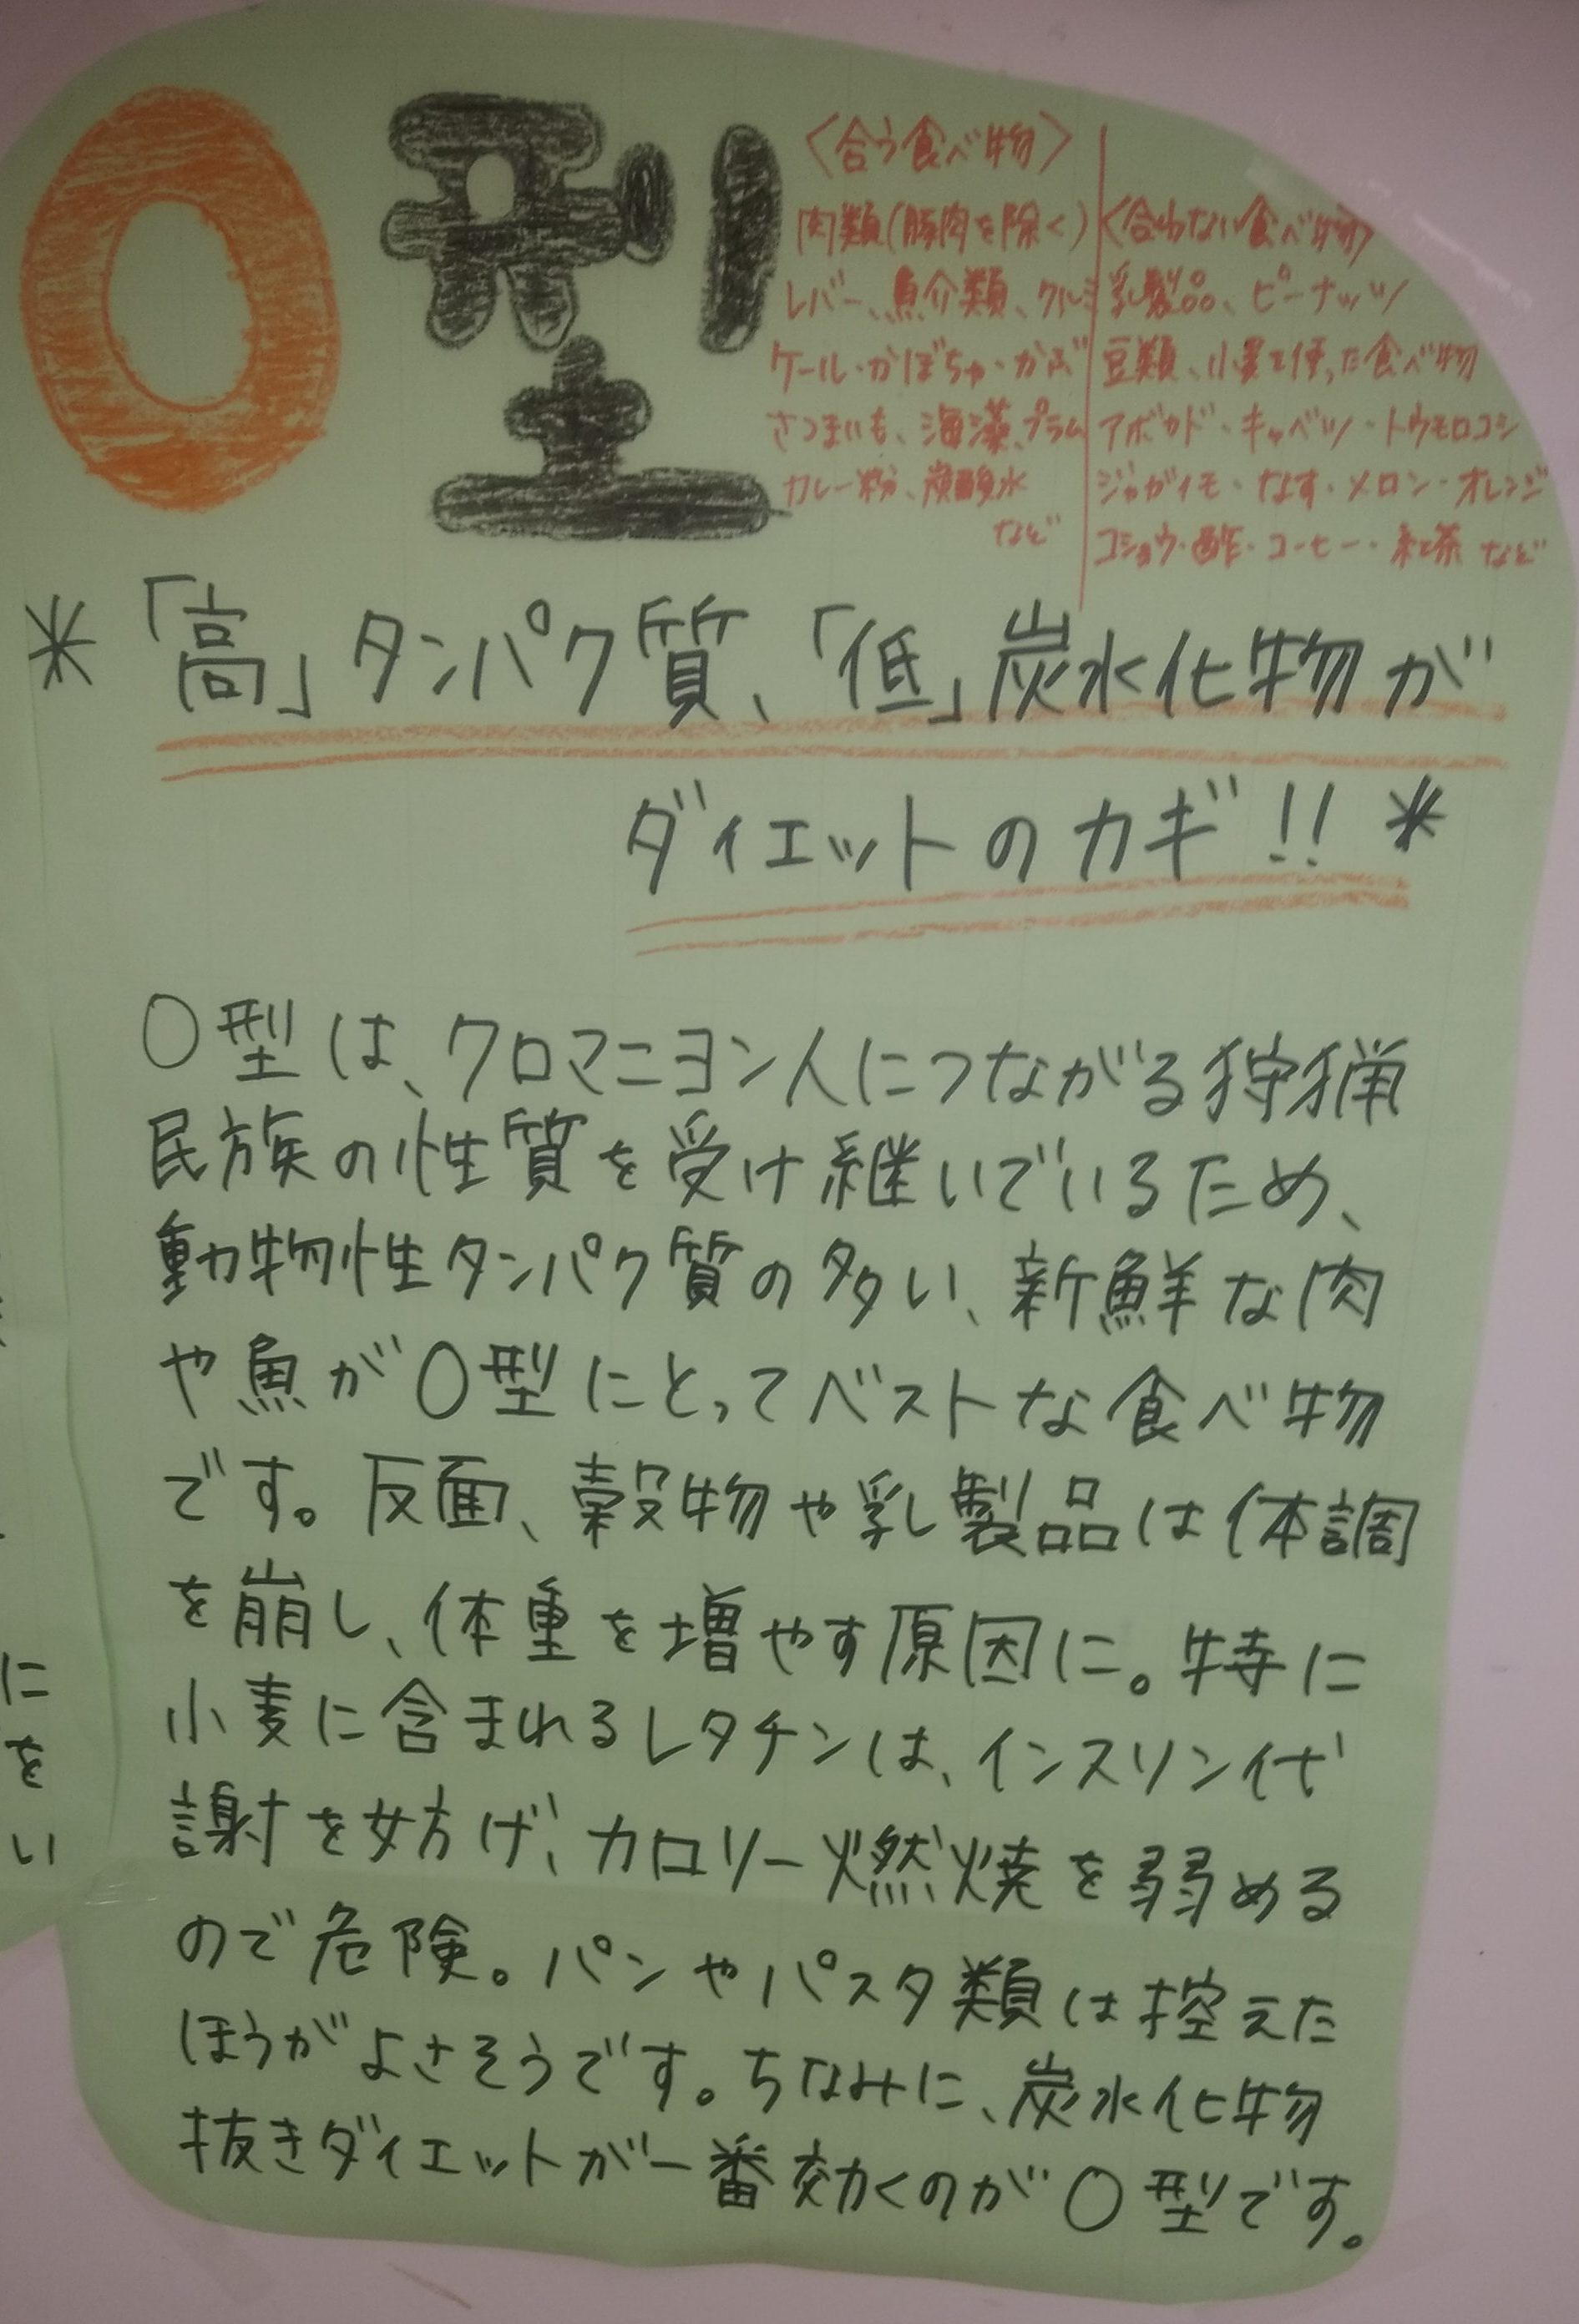 O型
〈合う食べ物〉
肉類(豚肉を除く)
レバー、魚介類、クルミ
ケール・かぼちゃ・かぶ
さつまいも、海藻、プラム
カレー粉、炭酸水
など
〈合わない食べ物〉
乳製品、ピーナッツ
豆類、小麦を使った食べ物
アボカド・キャベツ・トウモロコシ
ジャガイモ・なす・メロン・オレンジ
コショウ・酢・コーヒー・紅茶 など
*「高」タンパク質、「低」炭水化物が
ダイエットのカギ!! *
O型は、クロマニヨン人につながる狩猟
民族の性質を受け継いでいるため、
動物性タンパク質の多い、新鮮な肉
や魚がO型にとってベストな食べ物
です。反面、穀物や乳製品は体調
を崩し、体重を増やす原因に。特に
小麦に含まれるレタチンは、インスリン代
謝を妨げ、カロリー燃焼を弱める
ので危険。パンやパスタ類は控えた
ほうがよさそうです。ちなみに、炭水化物
抜きダイエットが一番効くのがO型です。
に
を
い